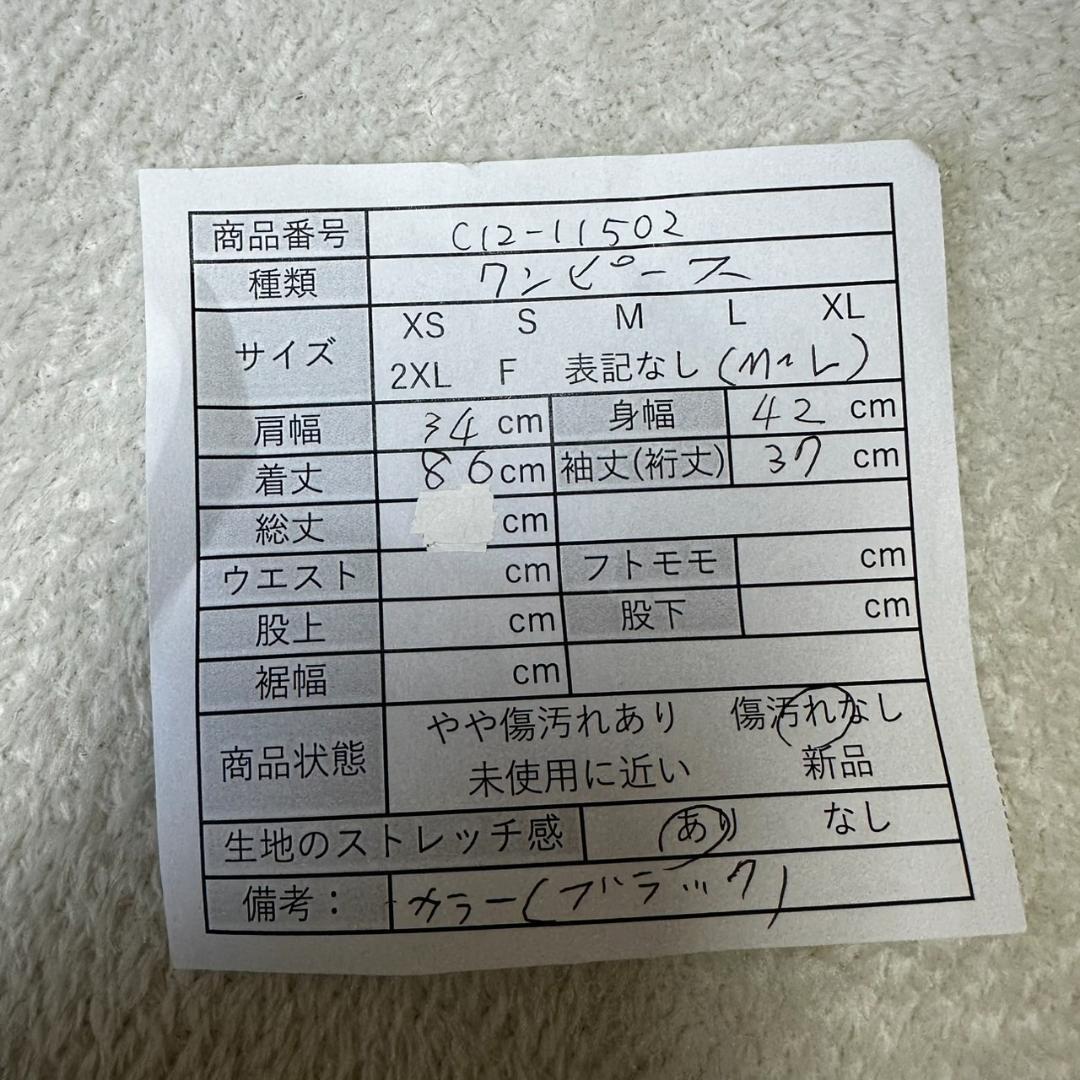 商品番号 C12-11502
種類 ワンピース
サイズ XS S M L XL
2XL F 表記なし (M~L)
肩幅 34 cm 身幅 42 cm
着丈 86 cm 袖丈(裄丈) 37 cm
総丈 cm
ウエスト cm フトモモ cm
股上 cm 股下 cm
裾幅 cm
商品状態 やや傷汚れあり 傷汚れなし
未使用に近い 新品
生地のストレッチ感 あり なし
備考: カラー(ブラック)